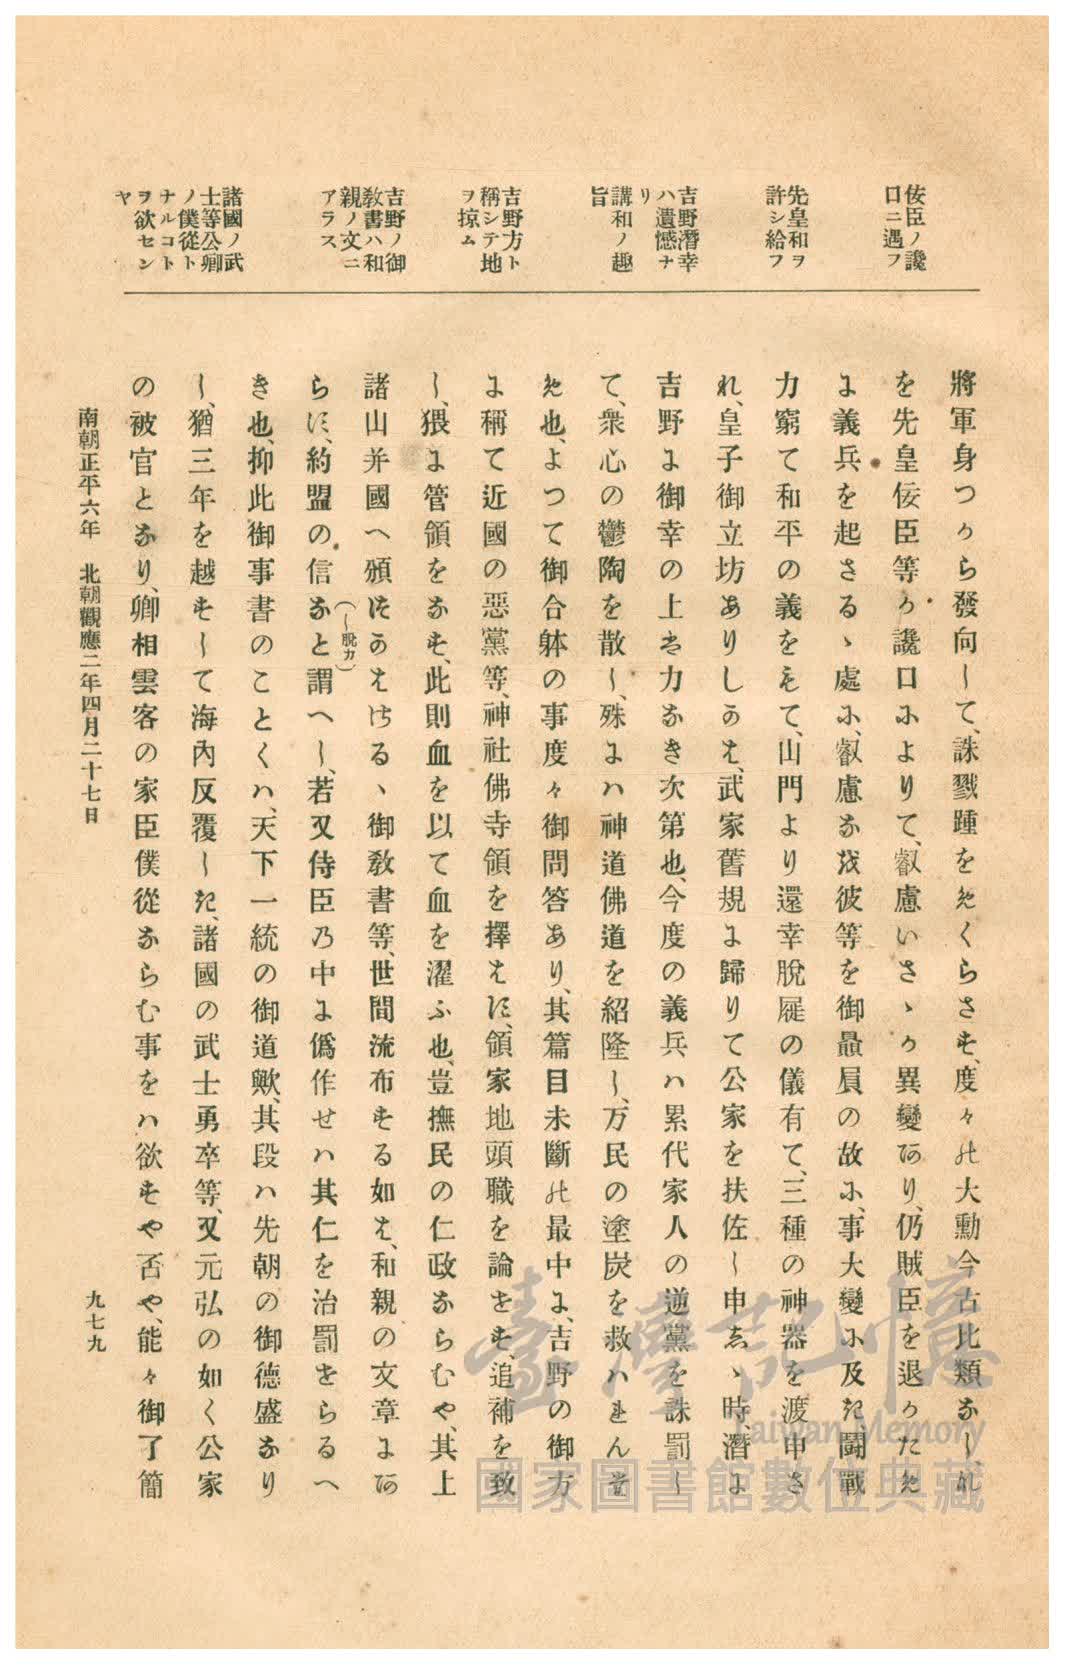 佞臣ノ讒
口ニ遇フ
先皇和ヲ
許シ給フ
吉野潛幸
ハ遺憾ナ
リ
講和ノ趣
旨
吉野方ト
稱シテ地
ヲ掠ム
吉野ノ御
敎書ハ和
親ノ文ニ
アラス
諸國ノ武
士等公卿
ノ僕從ト
ナルコト
ヲ欲セン
ヤ
將軍身つから發向して、誅戮踵をめくらさす、度々の大勳今古比類なし、然
を先皇佞臣等か讒口によりて、叡慮いさゝか異變あり、仍賊臣を退かため
に義兵を起さるゝ處に、叡慮なを彼等を御贔屓の故に、事大變に及た鬪戰
力窮て和平の義をもて、山門より還幸脫屣の儀有て、三種の神器を渡申さ
れ、皇子御立坊ありしかは、武家舊規に歸りて公家を扶佐し申志ゝ時、潛に
吉野に御幸の上は力なき次第也、今度の義兵ハ累代家人の逆黨を誅罰し
て、衆心の鬱陶を散し、殊にハ神道佛道を紹隆し、万民の塗炭を救ハれん爲
め也、よつて御合躰の事度々御問答あり、其篇目未斷の最中に、吉野の御方
に稱て近國の惡黨等、神社佛寺領を擇はに、領家地頭職を論せす、追補を致
し、猥に管領をなす、此則血を以て血を濯ふ也、豈撫民の仁政ならむや、其上
諸山并國へ頒つかはけるゝ御敎書等、世間流布する如は、和親の文章にあ
らに、約盟の信なと謂へし、若又侍臣乃中に僞作せハ其仁を治罰せらるへ
（し脫カ）
き也、抑此御事書のことくハ、天下一統の御道歟、其段ハ先朝の御德盛なり
し、猶三年を越すして海內反覆した、諸國の武士勇卒等、又元弘の如く公家
の被官となり、卿相雲客の家臣僕從ならむ事をハ欲すや否や、能々御了簡
南朝正平六年　北朝觀應二年四月二十七日
九七九
臺灣記憶
Taiwan Memory
國家圖書館數位典藏